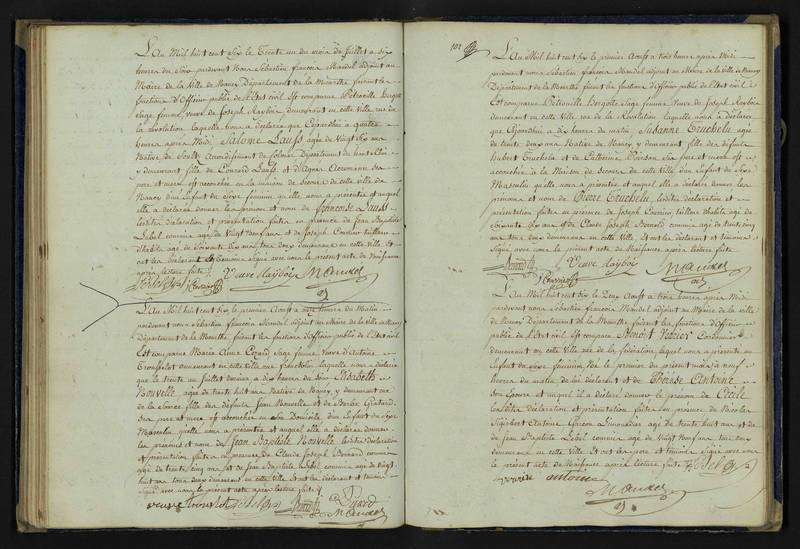 L'an Mil huit cent Six le Trente un du mois de Juillet a six
heures du Soir pardevant Nous Sébastien françois Mandel adjoint au
Maire de la Ville de Nancy Département de la Meurthe faisant les
fonctions d'Officier public de l'Etat civil Est comparue Pétronille
Sage femme, veuve de Joseph Raybois demeurant en cette Ville rue de
la Révolution laquelle nous a déclaré que Cejourd'hui a quatre
heures après Midi Salomé Lauss agée de Vingt Six ans
Native de Soultz Arrondissement de Colmar Département du haut Rhin
y demeurant fille de Conrard Lauss et d'Agnes Ackermann ses
père et mère est accouchée en la maison de Secours de cette ville de
Nancy d'un Enfant du Sexe féminin qu'elle nous a présenté et auquel
elle a déclaré donner les prénom et nom de Françoise Lauss
lesdites déclaration et présentation faites en présence de Jean Baptiste
Lebel commis agé de Vingt Neuf ans et de Joseph tailleur
d'habits agé de Soixante Six ans tous deux demeurans en cette ville Et
ont les déclarant Et Témoins Signé avec nous le présent acte de Naissance
après lecture faite
Veuve Raybois Mandel
L'an Mil huit cent Six le premier Août a onze heures du Matin
pardevant nous Sébastien françois Mandel adjoint au Maire de la Ville de Nancy
Département de la Meurthe faisant les fonctions d'Officier public de l'Etat civil
Est comparue Marie Anne Sage femme Veuve d'Antoine
Trousselot demeurant en cette Ville rue laquelle nous a déclaré
que le trente un Juillet dernier a dix heures du Soir Elisabeth
Nouvelle agée de trente huit ans Native de Nancy y demeurant rue
de la Source fille des défunts Jean Nouvelle et de Barbe
Ses père et mère Est accouchée en Son Domicile d'un Enfant du Sexe
Masculin qu'elle nous a présenté et auquel elle a déclaré donner
les prénoms et nom de Jean Baptiste Nouvelle lesdites déclaration
Et présentation faites en présence de Claude Joseph Bernard commis
agé de trente cinq ans et de Jean Baptiste Lebel commis agé de vingt
Neuf ans tous deux demeurant en cette ville Et ont les déclarant et témoins
Signé avec nous le présent acte après lecture faite
veuve trousselot Mandel
102
L'an Mil huit cent Six le premier Août a trois heures après Midi
pardevant nous Sébastien françois Mandel adjoint au Maire de la Ville de Nancy
Département de la Meurthe faisant les fonctions d'Officier public de l'Etat civil
Est comparue Pétronille Sage femme Veuve de Joseph Raybois
demeurant en cette Ville rue de la Révolution laquelle nous a déclaré
que Cejourd'hui a dix heures du matin, Susanne Truchelu agée
de trente deux ans Native de Nancy, y demeurant fille des défunts
hubert Truchelu et de Catherine Ses père et mère est
accouchée à la Maison de Secours de cette ville d'un Enfant du Sexe
Masculin qu'elle nous a présenté et auquel elle a déclaré donner les
prénoms et nom de Pierre Truchelu lesdites déclaration et
présentation faites en présence de Joseph tailleur d'habits agé de
Soixante Six ans et de Claude Joseph Bernard commis agé de trente cinq
ans tous deux demeurans en cette Ville Et ont les déclarant et témoins
Signé avec nous le présent acte de Naissance après lecture faite
Veuve Raybois Mandel
L'an Mil huit cent Six le Deux Août a trois heures après Midi
pardevant nous Sébastien françois Mandel adjoint au Maire de la ville
de Nancy Département de la Meurthe faisant les fonctions d'Officier
public de l'Etat civil Est comparu Benoit Cordonnier
demeurant en cette Ville rue de la Fédération lequel nous a présenté un
Enfant du Sexe féminin Né le premier du présent mois à neuf
heures du matin de lui déclarant et de Thérese Antoine
Son Epouse et auquel il a déclaré donner le prénom de Cécile
lesdites déclaration et présentation faites en présence de Nicolas
Antoine Garçon Limonadier agé de trente huit ans et de
de Jean Baptiste Lebel commis agé de Vingt Neuf ans tous deux
demeurans en cette Ville Et ont les père et témoins Signé avec nous
le présent acte de Naissance après lecture faite
antoine
Mandel